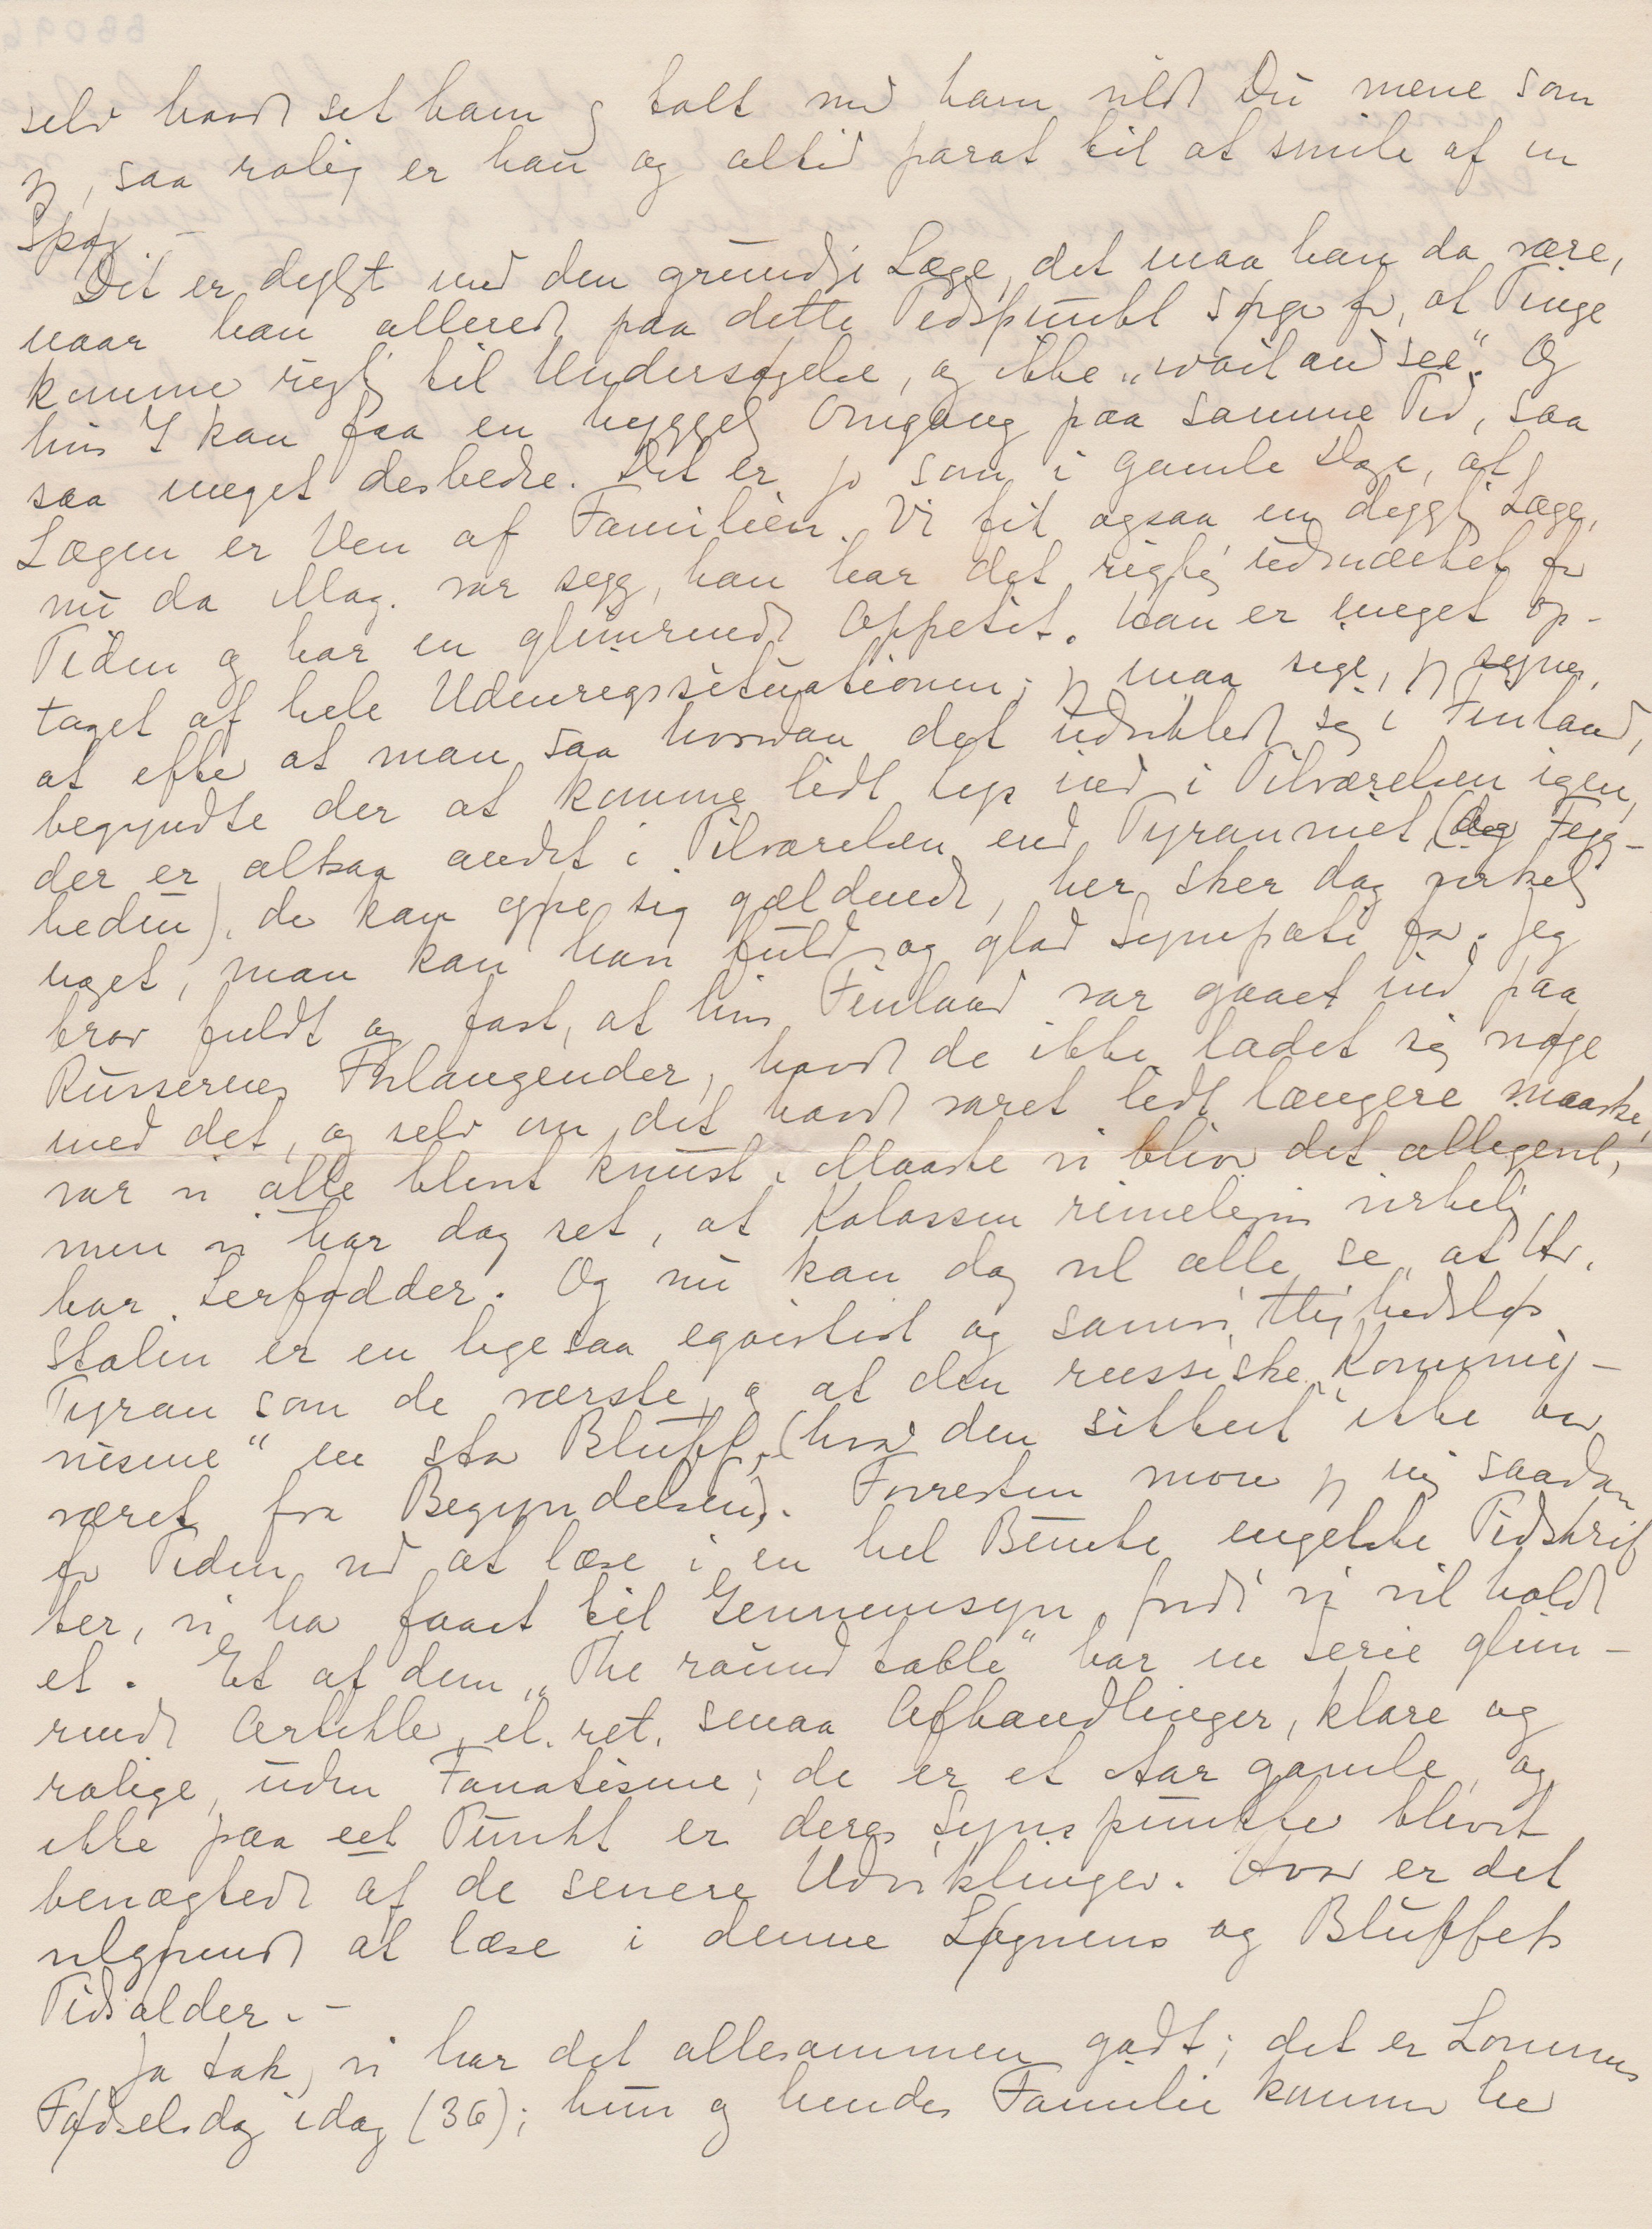 selv havde set ham og talt med ham vilde Du mene som
jeg, saa rolig er han og altid parat til at smile af en
Spøg. –
Det er dejligt med den grundige Læge, det maa han da være,
naar han allerede paa dette Tidspunkt sørger for, at Tinge
kommer rigtig til Undersøgelse, og ikke "wait and see". Og
hvis I kan faa en hyggelig Omgang paa samme Tid, saa
saa meget desbedre. Det er jo som i gamle Dage, at
Lægen er Ven af Familien. Vi fik ogsaa en dygtig Læge,
nu da Mag. var syg, han har det rigtig udmærket for
Tiden og har en glimrende Appetit. Han er meget op-
taget af hele Udenrigssituationen; jeg maa sige, jeg synes,
at efter at man saa hvordan det udviklede sig i Finland,
begyndte der at komme lidt Lys ind i Tilværelsen igen,
der er altsaa andet i Tilværelsen end Tyranniet (og Fejg-
heden), der kan gøre sig gældende, her sker dog virkelig
noget, man kan have fuld og glad Sympati for. Jeg
tror fuldt og fast, at hvis Finland var gaaet ind paa
Russernes Forlangender, havde de ikke ladet sig nøje
med det, og selv om det havde varet lidt længere maaske,
var vi alle blevet knust. Maaske vi bliver det alligevel,
men vi har dog set, at Kolossen rimeligvis virkelig
har Lerfødder. Og nu kan dog vel alle se, at Hr.
Stalin er en ligesaa egoistisk og samvittighedsløs
Tyran som de værste, og at den russiske "Kommu-
nisme" er stor Bluff, (hvad den sikkert ikke har
været fra Begyndelsen). Forresten morer jeg mig saadan
for Tiden ved at læse i en hel Bunke engelske Tidskrif
ter, vi har faaet til Gennemsyn, fordi vi vil holde
et. Et af dem, "The round table" har en Serie glim-
rende Artikler, el. ret. smaa Afhandlinger, klare og
rolige, uden Fanatisme; de er et Aar gamle, og
ikke paa eet Punkt er deres Synspunkter blevet
benægtede af de senere Udviklinger. Hvor er det
velgørende at læse i denne Løgnens og Bluffets
Tidsalder. –
Ja tak, vi har det allesammen godt; det er Lommes
Fødselsdag idag (36); hun og hendes Familie kommer her